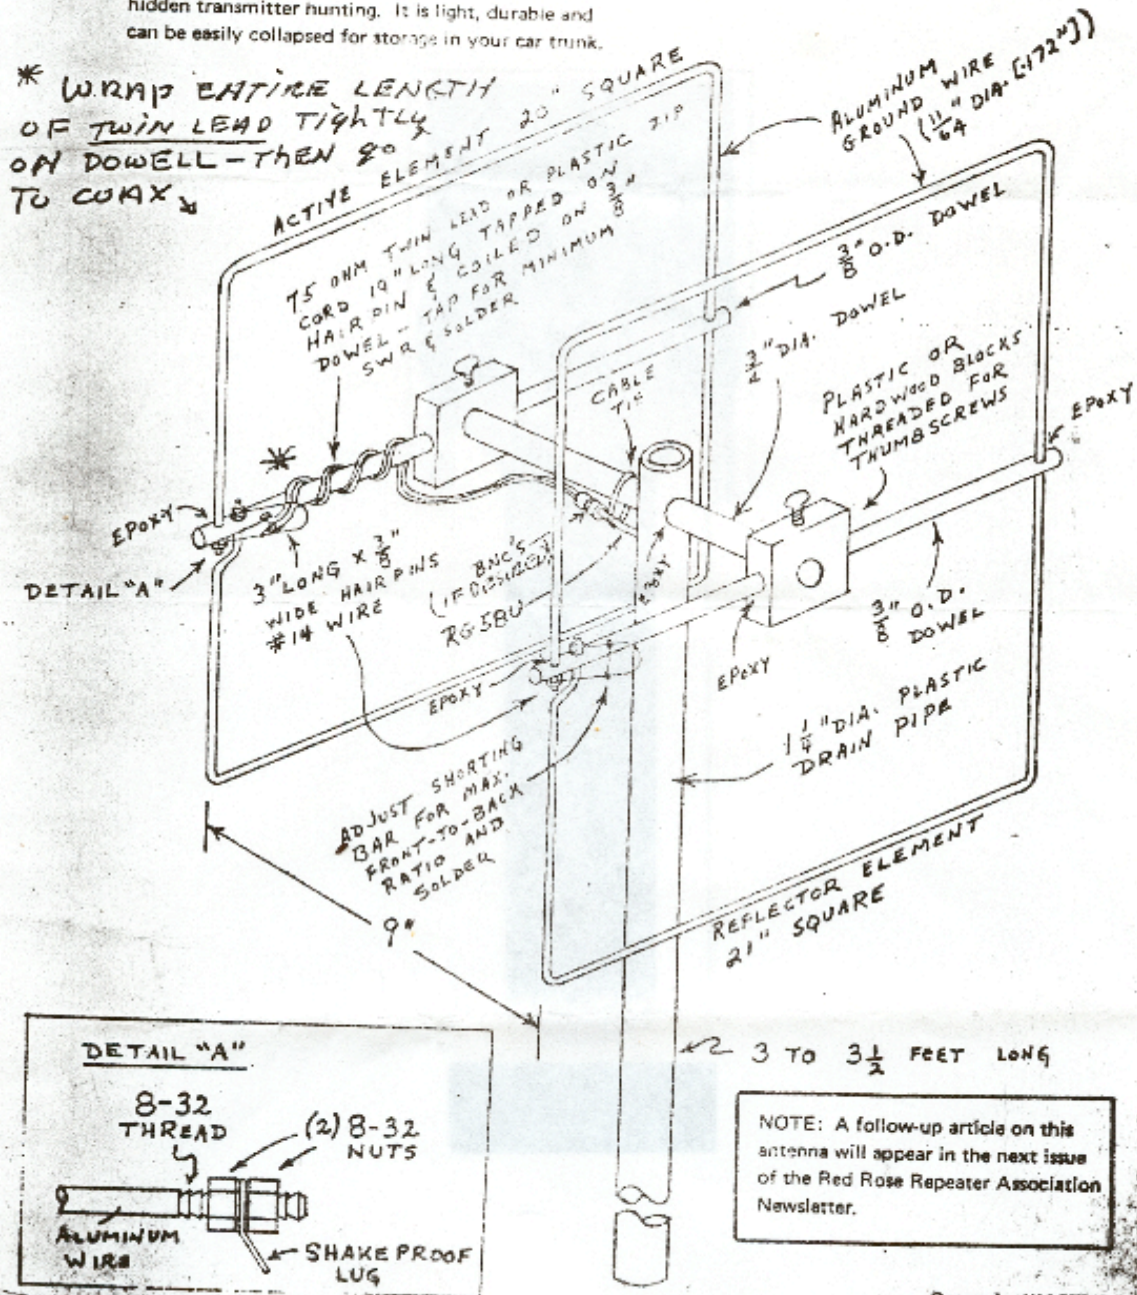 hidden transmitter hunting. It is light, durable and
can be easily collapsed for storage in your car trunk.
* WRAP ENTIRE LENGTH
OF TWIN LEAD TIGHTLY
ON DOWELL - THEN GO
TO COAX
ACTIVE ELEMENT 20" SQUARE
ALUMINUM
GROUND WIRE
(11/64" DIA. [.172"])
75 OHM TWIN LEAD OR PLASTIC ZIP
CORD 19" LONG TAPPED ON
HAIR PIN & COILED ON 3/8"
DOWEL - TAP FOR MINIMUM
SWR & SOLDER
3/8" O.D. DOWEL
3/4" DIA. DOWEL
CABLE
TIE
PLASTIC OR
HARDWOOD BLOCKS
THREADED FOR
THUMBSCREWS
EPOXY
*
EPOXY
DETAIL "A"
3" LONG X 3/8"
WIDE HAIR PINS
#14 WIRE
BNC'S
(IF DESIRED)
RG58U
EPOXY
EPOXY
EPOXY
3/8" O.D.
DOWEL
1 1/4" DIA. PLASTIC
DRAIN PIPE
ADJUST SHORTING
BAR FOR MAX.
FRONT-TO-BACK
RATIO AND
SOLDER
9"
REFLECTOR ELEMENT
21" SQUARE
3 TO 3 1/2 FEET LONG
DETAIL "A"
8-32
THREAD
(2) 8-32
NUTS
ALUMINUM
WIRE
SHAKEPROOF
LUG
NOTE: A follow-up article on this
antenna will appear in the next issue
of the Red Rose Repeater Association
Newsletter.